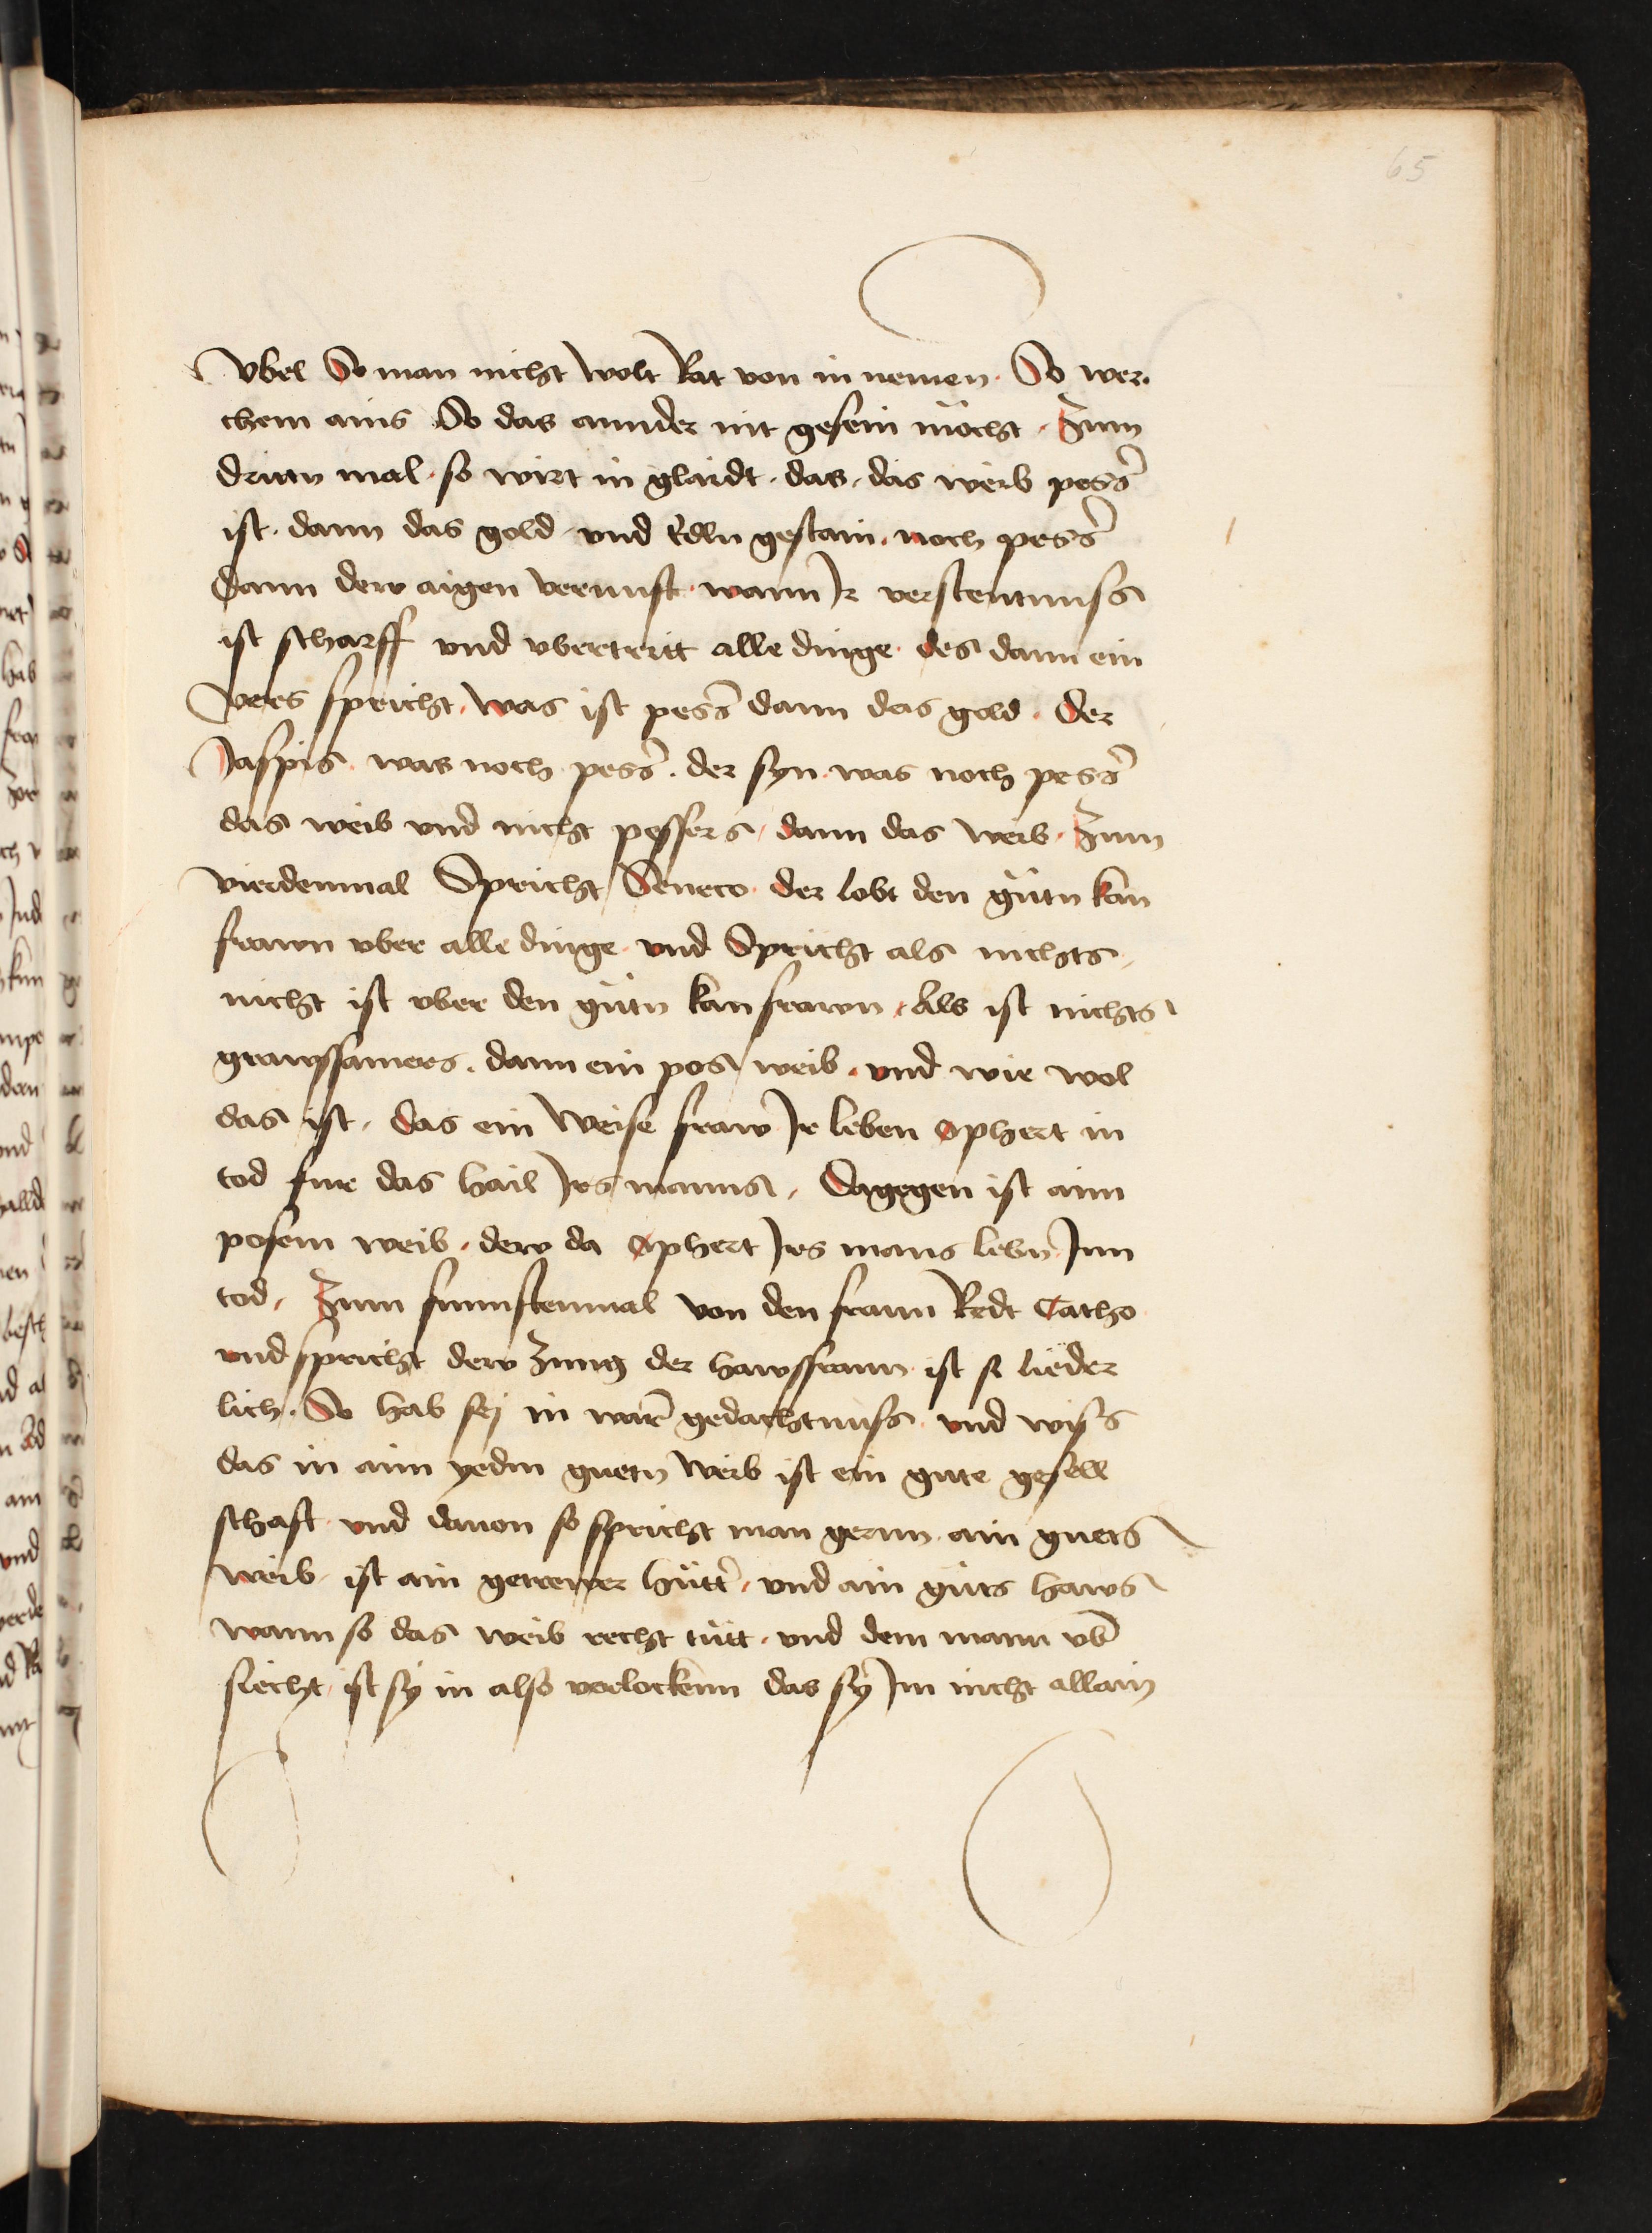 65
vbel So man nicht wolt Rat von in nemen. So wer.
chem ains So das annder nit gesein möcht. Zum
drittn mal. so wirt in glaidt. das. das weib pess͛
ist. dann das gold und Edln gestain. noch pess͛
dann dew aigen vernunft. wann Ir verstentnuss
ist scharff und vbertritt alle dinge. des dann ein
vers spricht. was ist pess͛ dann das gold. der
Jaspis. was noch pess͛. der syn. was noch pess͛
das weib und nicht pessers. dann das weib. Zum
vierdenmal Spricht Seneca. der lobt den gůtn kan
frawn vber alle dinge. und Spricht als nichts
nicht ist vber den gůtn kanfrawn. Als ist nichts
grawssamers. dann ein pos weib. und wie wol
das ist. das ein weise fraw Ir leben ophert in
tod fur das hail Irs manns. Dagegen ist aim
posem weib. dew da ophert Irs mans lebñ Inn
tod. Zum funnftenmal von den frawn Redt Catho
und spricht dew Zung der hawsfrawn. ist si lieder
lich. So hab sej in war͛ gedachtnuss. und wiss
das in aim yedm guetn weib ist ein gute gesell
schaft. und dauon so spricht man gernn. ain guets
weib. ist ain getrewer hůtt͛. und ain gůts haws
wann so das weib recht tůtt. und dem mann vb͛
siecht. ist sy in also verlockenn das sy Im nicht allain